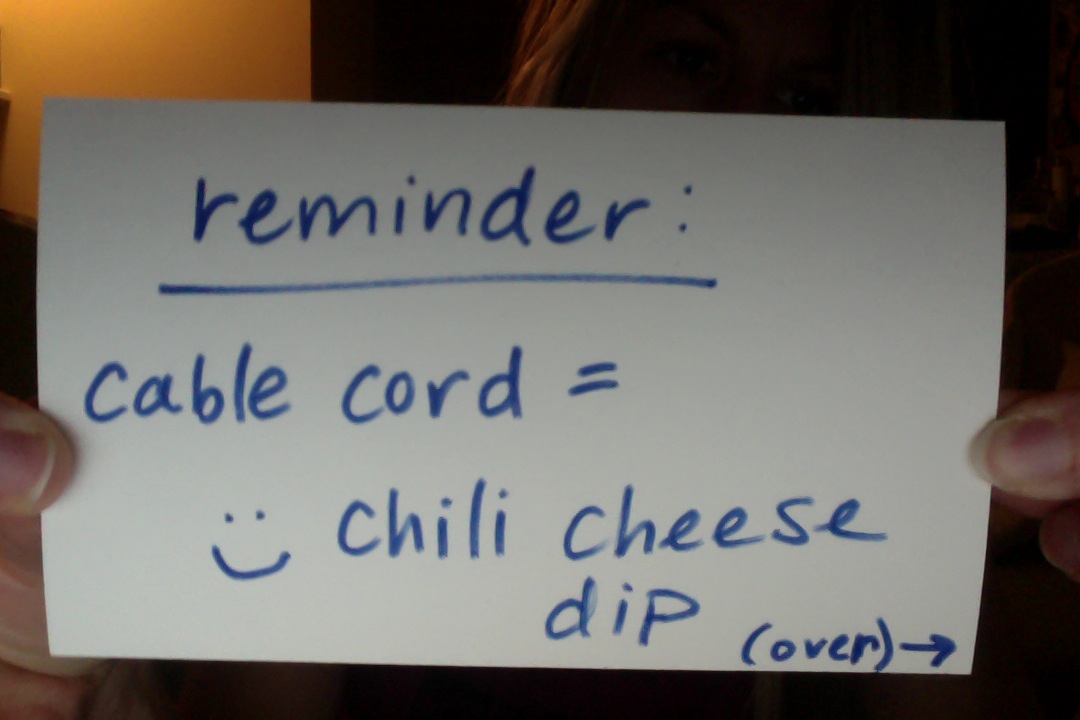 reminder:
cable cord =
chili cheese
dip
(over)→